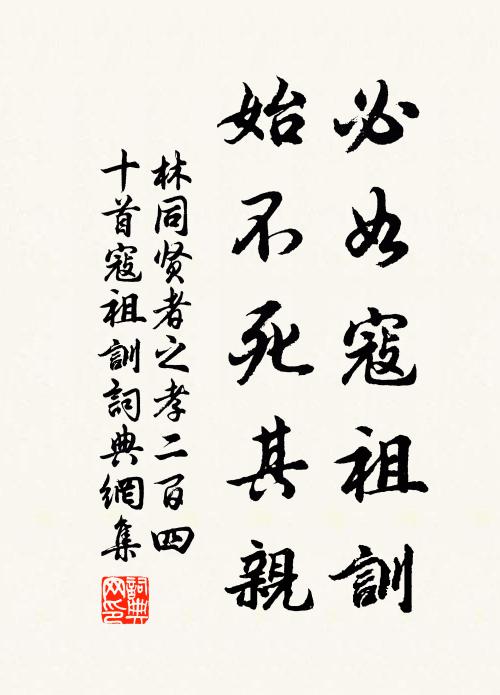 必如寇祖訓
始不死其親
林同贤者之孝二百四
十首寇祖訓詞典網集
詞典
网印